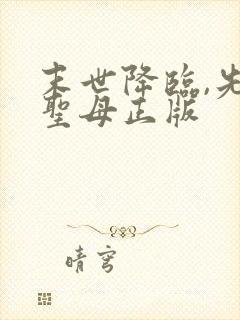 末世降臨,先
聖母正版
晴穹